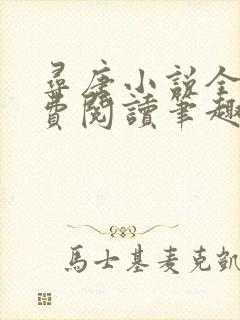 尋唐小說全
費閱讀筆趣
馬士基麥克凱